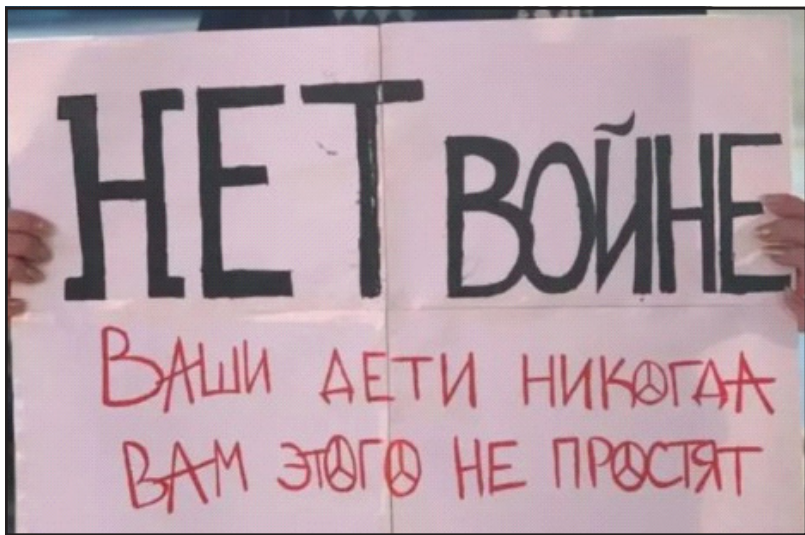 НЕТ ВОЙНЕ
ВАШИ ДЕТИ НИКОГДА
ВАМ ЭТОГО НЕ ПРОСТЯТ